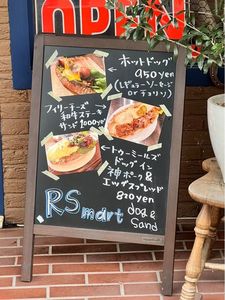 OPEN
ホットドッグ
950yen
(レギュラーソーセージ
or チョリソ)
フィリーチーズ
和牛ステーキ
サンド 1000yen
トゥーミールズ
ドッグイン
神ポーク&
エッグスプレッド
870yen
RSmart
dog &
Sand